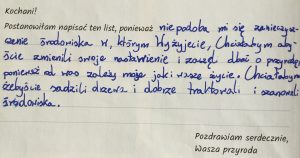 Kochani!
Postanowiłam napisać ten list, ponieważ nie podoba mi się zanieczysz-
czenie środowiska w, którym żyjecie, Chciałabym aby-
ście zmienili swoje nastawienie i zaczęli dbać o przyrodę
ponieważ od was zależy moje jak i wasze życie. Chciałabym
żebyście sadzili drzewa i dobrze traktowali i szanowali
środowiska.
Pozdrawiam serdecznie,
Wasza przyroda